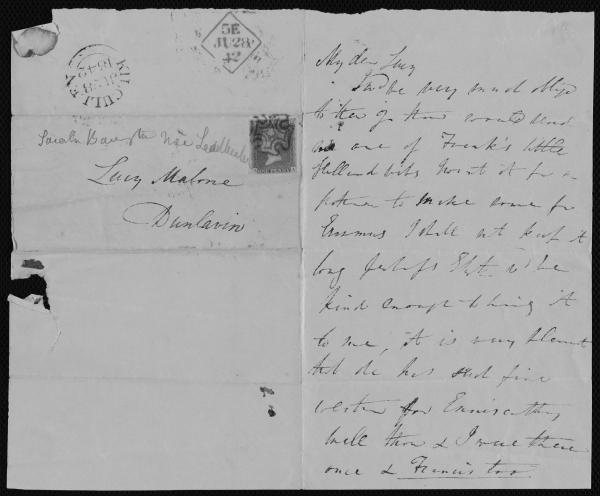 KILCULLEN
JU 28
1842
5E
JU 28
42
Sarah née Leadbeater
Lucy Malone
Dunlavin
ONE PENNY
My dear Lucy
I'd be very much oblig'd
to thee if thou would send
me one of Frank's little
Holland bibs I want it for a
pattern to make some for
Erasmus I shall not keep it
long perhaps Eliz. w'd be
kind enough to bring it
to me, it is very pleasant
that he has such fine
weather for Enniscorthy
well thou & I were there
once & Francis too